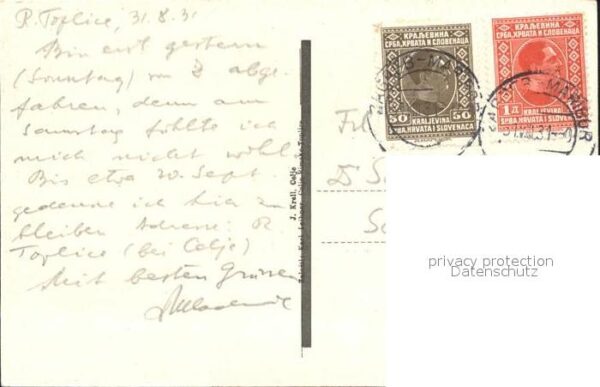 R. Toplice, 31.8.31
Bin erst gestern
(Sonntag) von Z abge-
fahren, denn am
Samstag fühlte ich
mich nicht wohl
Bis etwa 20. Sept.
gedenke ich hier zu
bleiben Adresse: R
Toplice (bei Celje)
Mit besten Grüssen
J. Krell, Celje
КРАЉЕВИНА
СРБА, ХРВАТА И СЛОВЕНАЦА
50 50
KRALJEVINA
SRBA, HRVATA I SLOVENACA
КРАЉЕВИНА
СРБА, ХРВАТА И СЛОВЕНАЦА
1 Д
KRALJEVINA
SRBA, HRVATA I SLOVENACA
MARIBOR
Frl
D S
privacy protection
Datenschutz